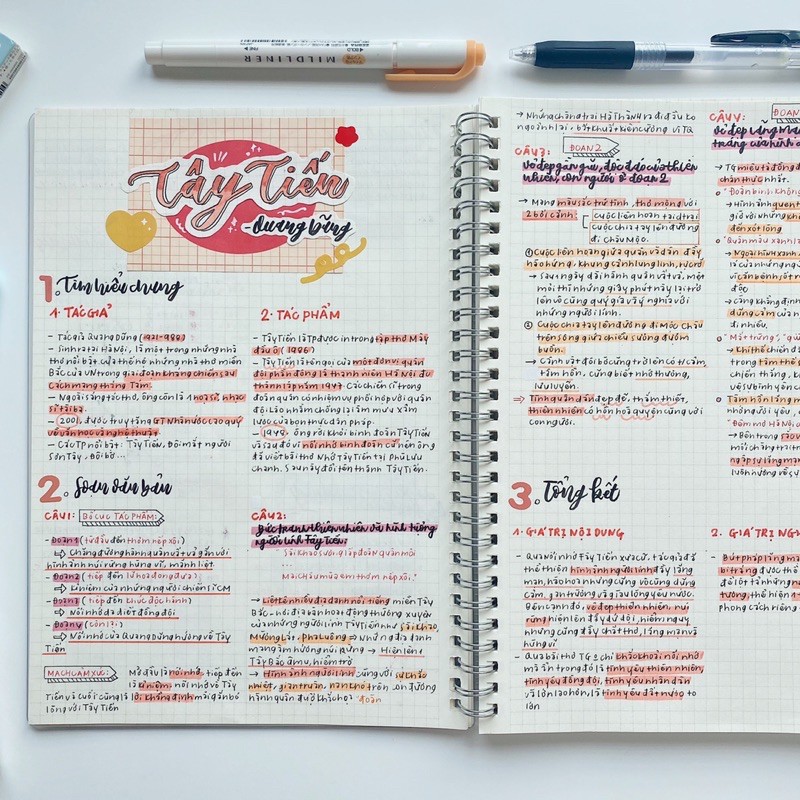 MILDLINER
Tây Tiến
-Quang Dũng
1. Tìm hiểu chung
1. TÁC GIẢ
- Tác giả Quang Dũng (1921-1988)
- Sinh ra tại Hà Nội, là một trong những nhà
thơ nổi bật của thế hệ những nhà thơ miền
Bắc của VN trong giai đoạn kháng chiến sau
cách mạng tháng Tám.
- Ngoài sáng tác thơ, ông còn là 1 họa sĩ, nhạc
sĩ tài ba.
- 2001, được truy tặng GT Nhà nước cao quý
về văn học và nghệ thuật.
- Các TP nổi bật: Tây Tiến, Đôi mắt người
Sơn Tây, Đôi bờ...
2. TÁC PHẨM
- Tây Tiến là TP được in trong tập thơ Mây
đầu ô (1986)
- Tây Tiến là tên gọi của một đơn vị quân
đội phần đông là thanh niên Hà Nội đc
thành lập năm 1947. Các chiến sĩ trong
đoàn quân có nhiệm vụ phối hợp với quân
đội Lào nhằm chống lại âm mưu xâm
lược của bọn thực dân pháp.
- 1948, ông rời khỏi binh đoàn Tây Tiến
và sau đó vì nỗi nhớ binh đoàn cũ nên ông
đã viết bài thơ Nhớ Tây Tiến tại Phù Lưu
Chanh. Sau này đổi tên thành Tây Tiến.
2. Soạn văn bản
CÂU 1: BỐ CỤC TÁC PHẨM:
- Đoạn 1 (từ đầu đến thơm nếp xôi)
⇨ Chặng đường hành quân vất vả gắn với
hình ảnh núi rừng hùng vĩ, mãnh liệt
- Đoạn 2 (tiếp đến lũ hoa đong đưa)
⇨ kỉ niệm của những người chiến sĩ CM
- Đoạn 3 (tiếp đến khúc độc hành)
⇨ Nỗi nhớ da diết đồng đội
- Đoạn 4 (còn lại)
⇨ Nỗi nhớ của Quang Dũng hướng về Tây
Tiến
MẠCH CẢM XÚC: Mở đầu là nỗi nhớ, tiếp đến
là kỉ niệm, nỗi nhớ về Tây
Tiến và cuối cùng là lời khẳng định mãi gắn bó
lòng với Tây Tiến
CÂU 2:
Bức tranh thiên nhiên và hình tượng
người lính Tây Tiến:
Sài Khao sương lấp đoàn quân mỏi
...
Mai Châu mùa em thơm nếp xôi."
- Liệt kê nhiều địa danh nổi tiếng miền Tây
Bắc - nơi địa bàn hoạt động thường xuyên
của những người lính Tây Tiến như Sài Khao,
Mường Lát, Pha Luông ⇨ Những địa danh
mang âm hưởng núi rừng → Hiện lên 1
Tây Bắc âm u, hiểm trở
→ Hình ảnh người lính cùng với sự khắc
nhiệt, gian truân, nan khó trên con đường
hành quân được khắc họa đoàn
→ Những chàng trai Hà Thành ra đi đầu ko
ngoảnh lại, bất khuất kiên cường vì TQ
CÂU 3: ĐOẠN 2
Vẻ đẹp gần gũi, độc đáo của thiên
nhiên, con người ở đoạn 2
→ Mang màu sắc trữ tình, thơ mộng với
2 bối cảnh: Cuộc liên hoan tại trại
Cuộc chia tay lên đường
đi Châu Mộc.
① Cuộc liên hoan giữa quân và dân đầy
hào hứng, khung cảnh lung linh, rực rỡ
→ Sau 1 ngày dài hành quân vất vả, mệt
mỏi thì những giây phút này lại trở
lên vô cùng quý giá và ý nghĩa với
những người lính.
② Cuộc chia tay lên đường đi Mộc Châu
trên sông giữa chiều sương đượm
buồn.
→ Cảnh vật đôi bờ cũng trở lên có t/cảm,
tâm hồn, cũng biết nhớ thương,
lưu luyến.
⇒ Tình quân dân đẹp đẽ, thắm thiết,
thiên nhiên có hồn hoà quyện cùng với
con người.
3. Tổng kết
1. GIÁ TRỊ NỘI DUNG
- Qua nỗi nhớ Tây Tiến xưa cũ, tác giả đã
thể hiện hình ảnh người lính đầy lãng
mạn, hào hoa nhưng cũng vô cùng dũng
cảm, gan trường và giàu lòng yêu nước.
Bên cạnh đó, vẻ đẹp thiên nhiên, núi
rừng hiện lên đầy dữ dội, hiểm nguy
nhưng cũng đầy chất thơ, lãng mạn và
hùng vĩ
- Qua bài thơ TG ko chỉ khắc khoải nỗi nhớ
mà ẩn trong đó là tình yêu thiên nhiên,
tình yêu đồng đội, tình yêu nhân dân
và lớn lao hơn, là tình yêu đất nước to
lớn
CÂU 4: ĐOẠN
vẻ đẹp lãng mạn
tráng của hình
→ TG miêu tả
chân thực nhất.
"Đoàn binh không
→ Hình ảnh quen
giả với những
đến xót lòng
"Quân màu xanh lá
→ Ngoại hình xanh
vì căn bệnh sốt
độc
→ càng khẳng định
của
đi nhiều.
"Mắt trừng", "
→ Khí thế chiến
trong tâm thế
chiến thắng,
vệ sự bình yên
Tâm hồn lãng mạn
người yêu,
"Đêm mơ Hà Nội
→ Bên trong
mỗi chàng trai
ngập sự lãng mạn
về
2. GIÁ TRỊ
- Bút pháp lãng mạn
bi tráng được thể
để lột tả những
tượng, thể hiện 1
phong cách riêng